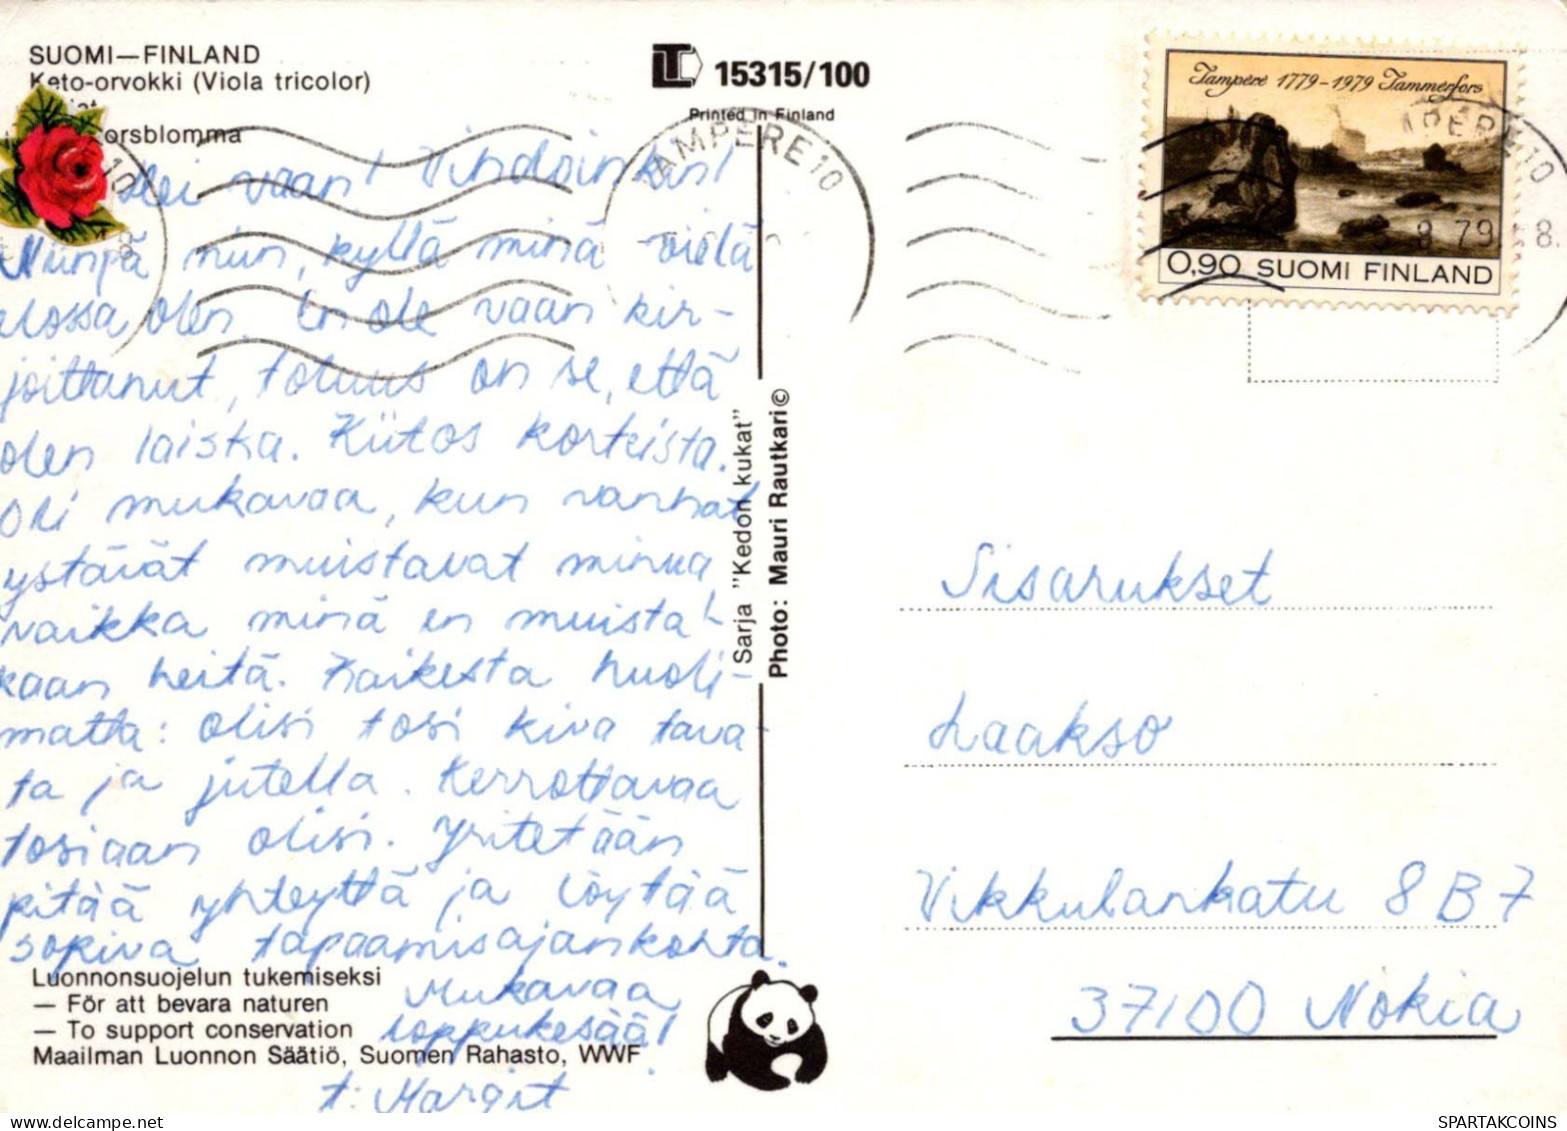 SUOMI—FINLAND
Keto-orvokki (Viola tricolor)
orsblomma
15315/100
Printed in Finland
Tampere 1779-1979 Tammerfors
0,90 SUOMI FINLAND
AMPERE 10
8 79
Hei vaan! Vihdoinkin!
Niinpä niin, kyllä minä vielä
elossa olen. En ole vaan kir-
joittanut, totuus on se, että
olen laiska. Kiitos korteista.
Oli mukavaa, kun vanhat
ystävät muistavat minua,
vaikka minä en muista-
kaan heitä. Kaikesta huoli-
matta: olisi tosi kiva tava-
ta ja jutella. Kerrottavaa
tosiaan olisi. Yritetään
pitää yhteyttä ja löytää
sopiva tapaamisajankohta.
Mukavaa
loppukesää!
t: Margit
Luonnonsuojelun tukemiseksi
— För att bevara naturen
— To support conservation
Maailman Luonnon Säätiö, Suomen Rahasto, WWF
Sarja "Kedon kukat"
Photo: Mauri Rautkari ©
Sisarukset
Laakso
Vikkulankatu 8 B 7
37100 Nokia
SPARTAKCOINS